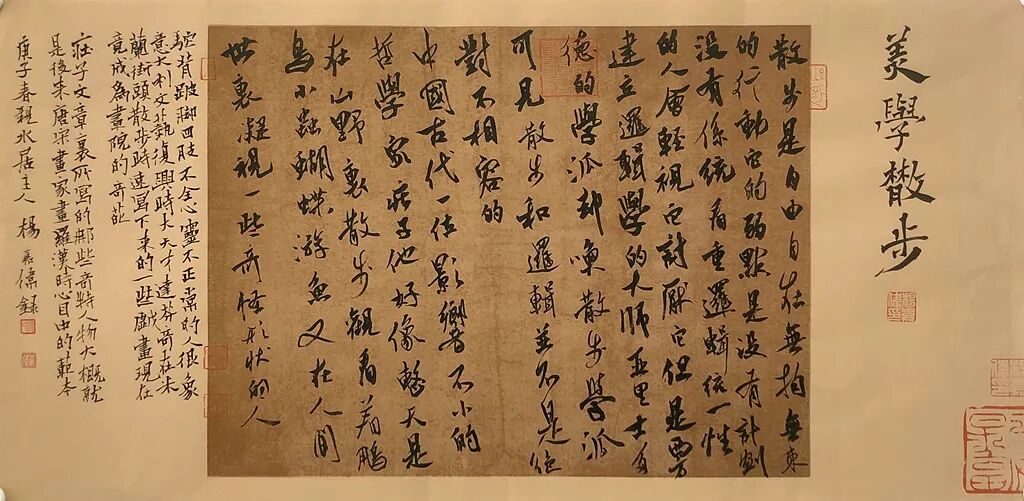 美學散步
散步是自由自在無拘無束
的行動它的弱點是没有計劃
没有係統看重邏輯統一性
的人會輕視它討厭它但是西方
建立邏輯學的大師亞里士多
德的學派卻喚散步學派
可見散步和邏輯並不是絶
對不相容的
中國古代一位影響不小的
哲學家莊子他好像整天是
在山野裏散步觀看着鵬
鳥小蟲蝴蝶游魚又在人間
世裏凝視一些奇怪形狀的人
駝背跛脚四肢不全心靈不正常的人很象
意大利文藝復興時大天才達芬奇在米
蘭街頭散步時速寫下來的一些戲畫現在
竟成爲畫院的奇葩
莊子文章裏所寫的那些奇特人物大概就
是後來唐宋畫家畫羅漢時心目中的範本
庚子春親水居主人楊 儒録